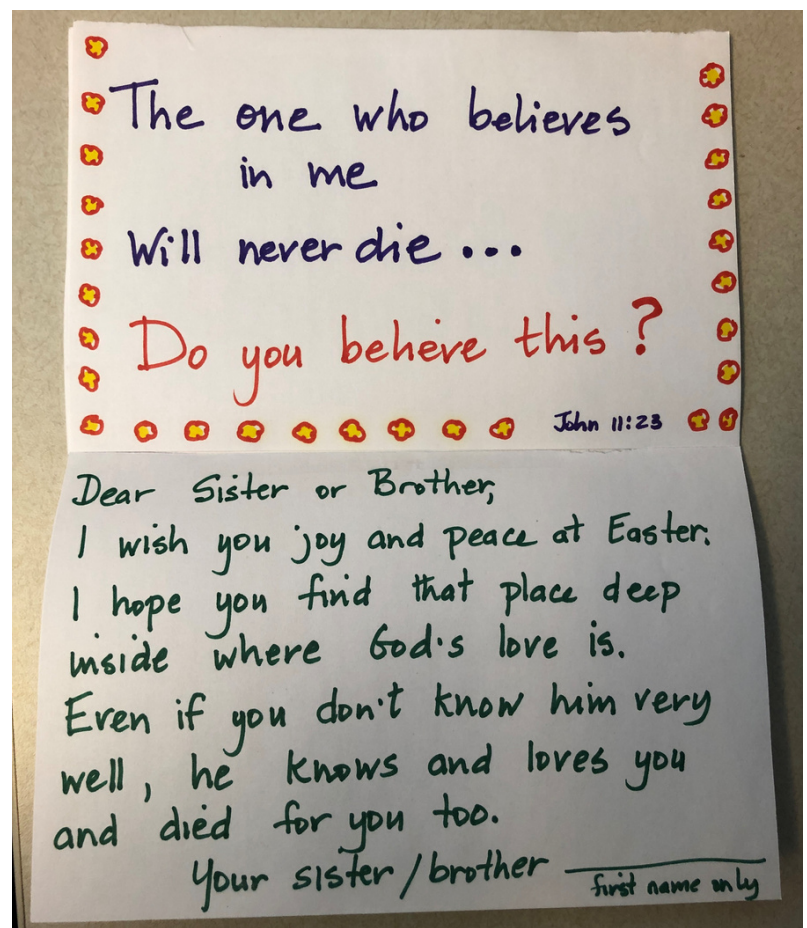 The one who believes
in me
Will never die...
Do you believe this?
John 11:23
Dear Sister or Brother,
I wish you joy and peace at Easter.
I hope you find that place deep
inside where God's love is.
Even if you don't know him very
well, he knows and loves you
and died for you too.
Your sister/brother
first name only